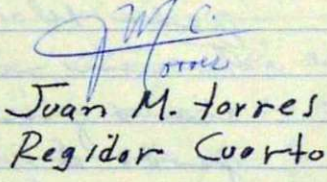 J M C.
Torres
Juan M. torres
Regidor Cuarto